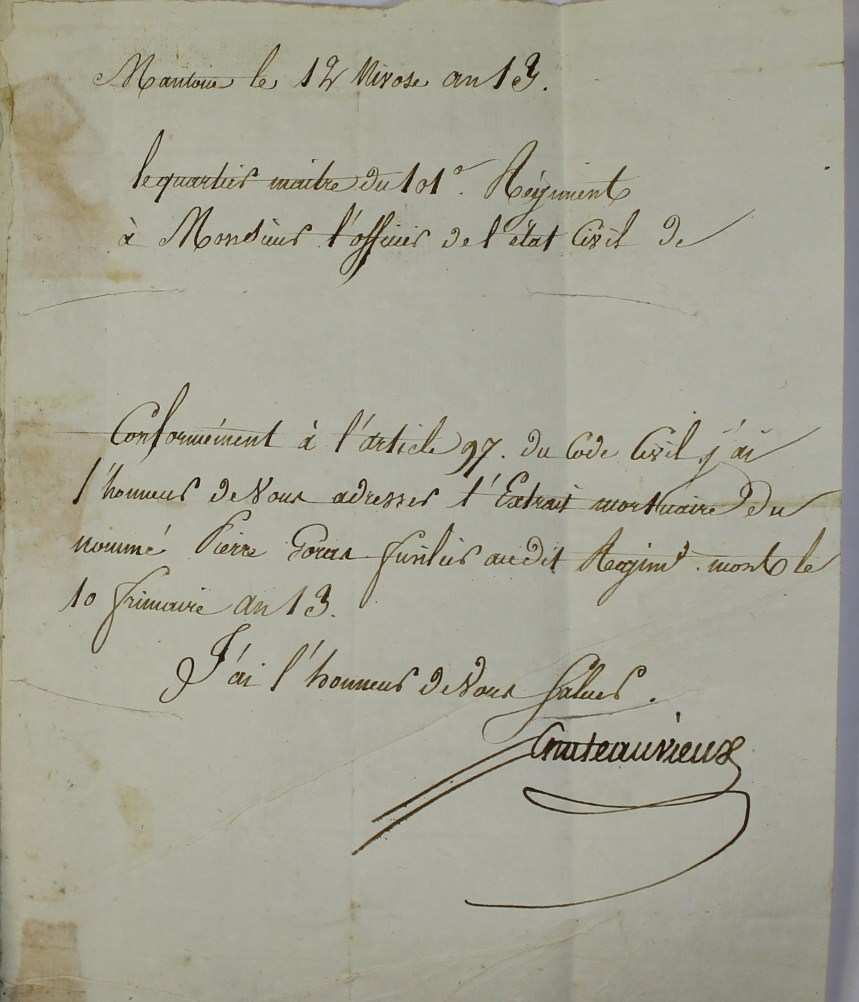 Mantoue le 12 Nivose an 13.
le quartier maitre du 101e. Régiment
à Monsieur l'officier de l'état Civil de
Conformément à l'article 97. du Code Civil j'ai
l'honneur de Vous adresser l'Extrait mortuaire du
nommé Pierre fusilier audit Regimt. mort le
10 frimaire an 13.
J'ai l'honneur de Vous Saluer.
Chateauvieux